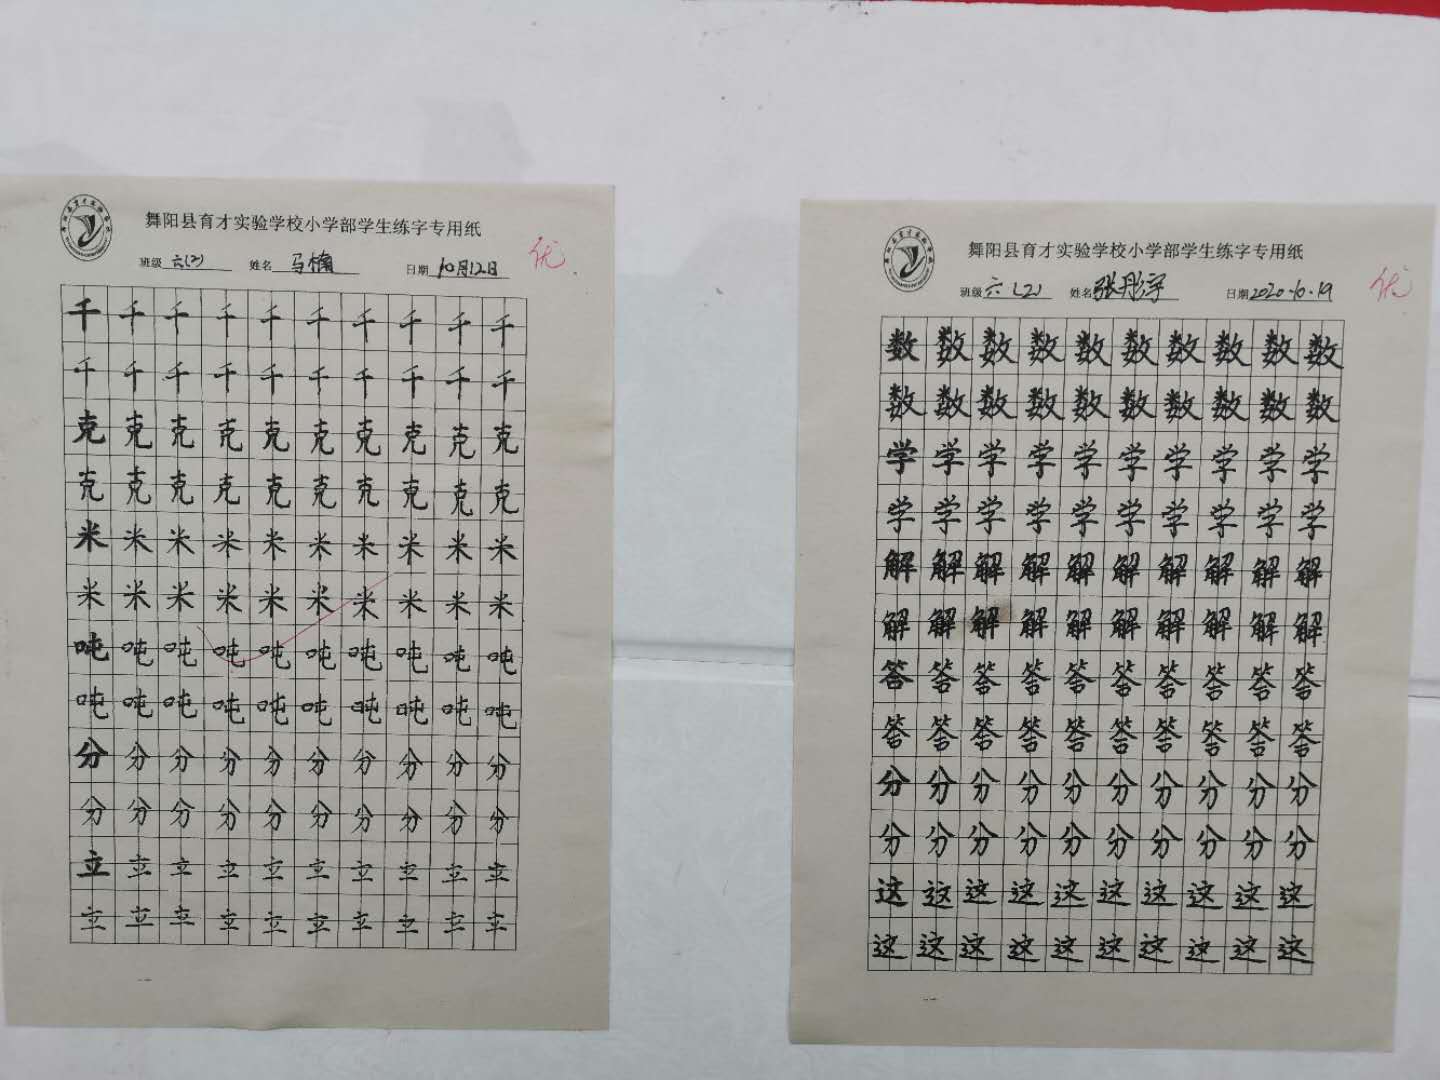 舞阳县育才实验学校小学部学生练字专用纸
班级 六(2) 姓名 马楠 日期 10月12日
优
千千千千千千千千千千
千千千千千千千千千千
克克克克克克克克克克
克克克克克克克克克克
米米米米米米米米米米
米米米米米米米米米米
吨吨吨吨吨吨吨吨吨吨
吨吨吨吨吨吨吨吨吨吨
分分分分分分分分分分
分分分分分分分分分分
立立立立立立立立立立
立立立立立立立立立立
舞阳县育才实验学校小学部学生练字专用纸
班级 六(2) 姓名 张彤 日期 2020.10.19
优
数数数数数数数数数数
数数数数数数数数数数
学学学学学学学学学学
学学学学学学学学学学
解解解解解解解解解解
解解解解解解解解解解
答答答答答答答答答答
答答答答答答答答答答
分分分分分分分分分分
分分分分分分分分分分
这这这这这这这这这这
这这这这这这这这这这